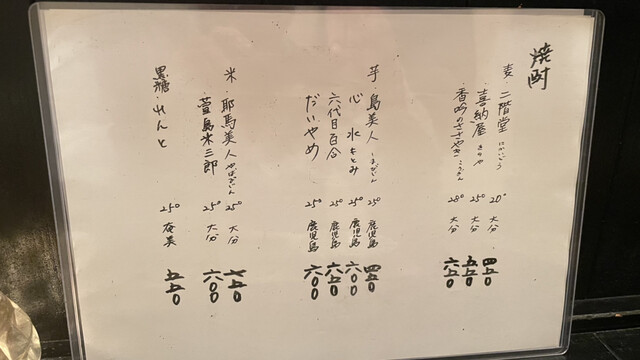 焼酎
麦・二階堂 にかいどう 20° 大分 四五〇
・喜納屋 きのや 25° 大分 五五〇
・香吟のささやき こうぎん 28° 大分 六五〇
芋・島美人 しまびじん 25° 鹿児島 四五〇
心水 もとみ 25° 鹿児島 六〇〇
六代目百合 25° 鹿児島 六五〇
だいやめ 25° 鹿児島 六〇〇
米・耶馬美人 やばびじん 25° 大分 七五〇
・萱島米三郎 25° 大分 六〇〇
黒糖・れんと 25° 奄美 五五〇